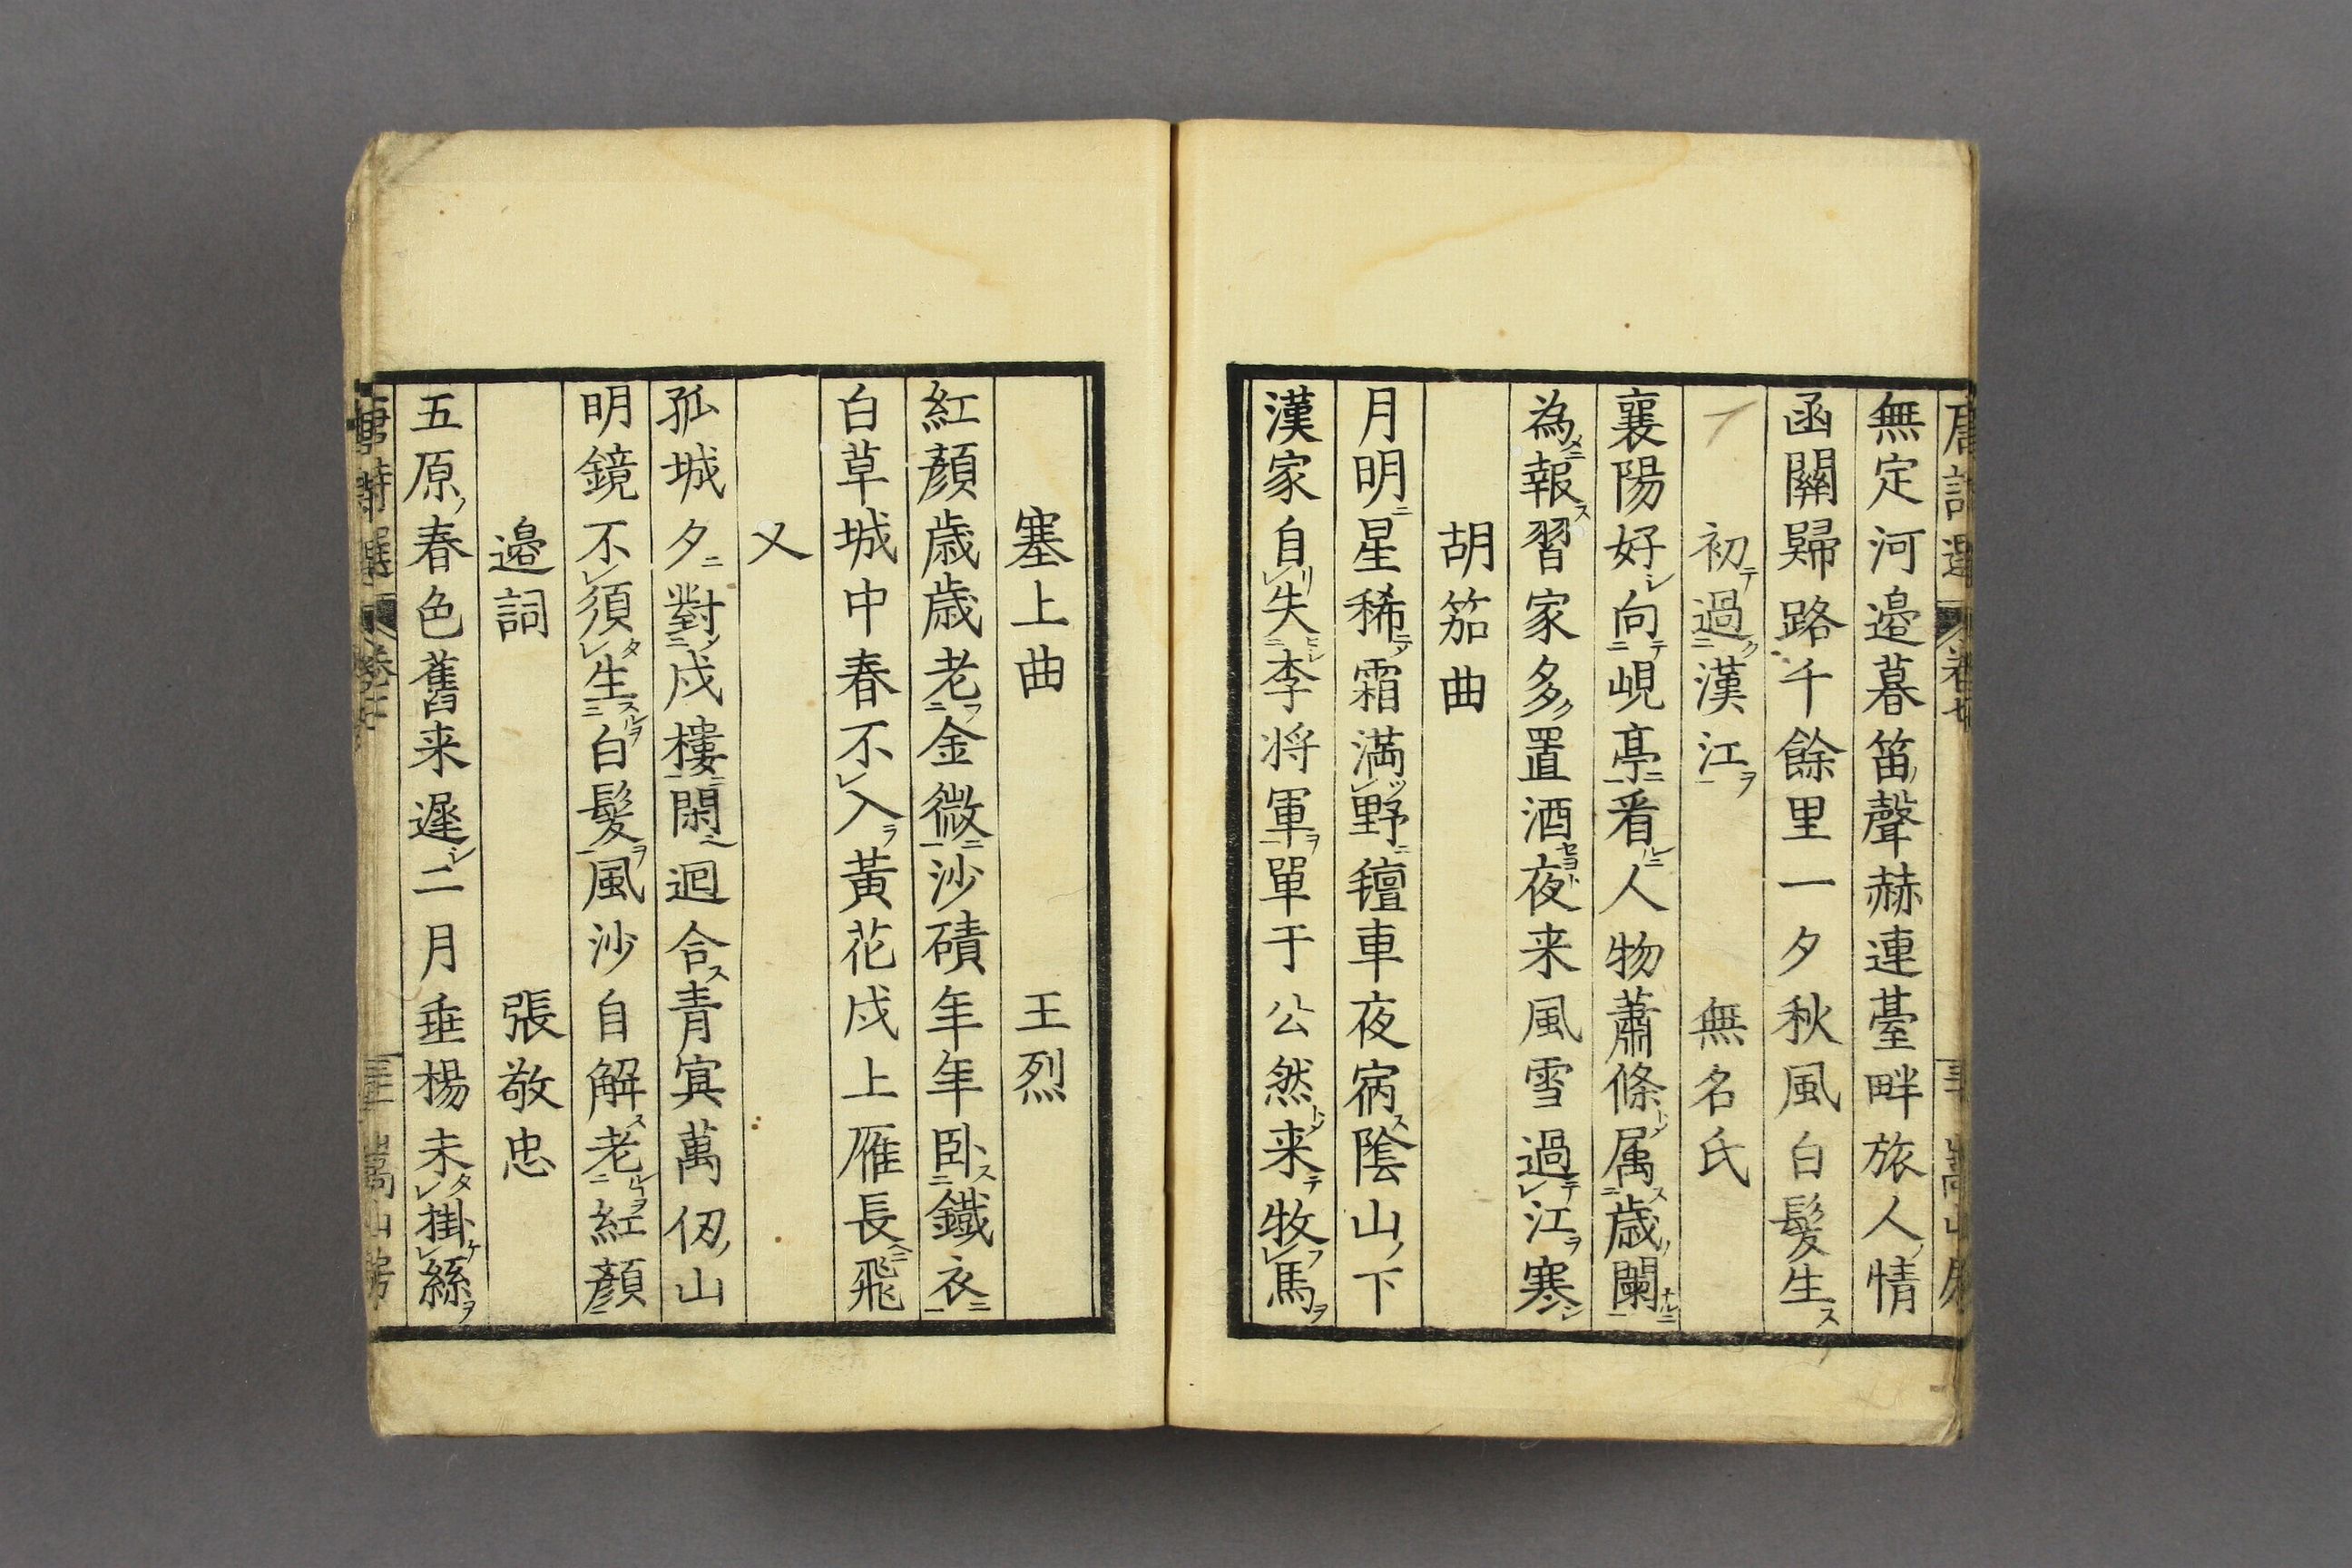 無定河邉暮笛聲赫連䑓畔旅人情
函關歸路千餘里一夕秋風白髮生
初過漢江 無名氏
襄陽好向峴亭看人物蕭條属歳闌
為報習家多置酒夜来風雪過江寒
胡笳曲
月明星稀霜満野氊車夜宿陰山下
漢家自失李将軍單于公然来牧馬
塞上曲 王烈
紅顏歳歳老金微沙磧年年臥鐵衣
白草城中春不入黃花戍上雁長飛
又
孤城夕對戍樓閑迴合青冥萬仞山
明鏡不須生白髮風沙自解老紅顏
邉詞 張敬忠
五原春色舊来遲二月垂楊未掛絲